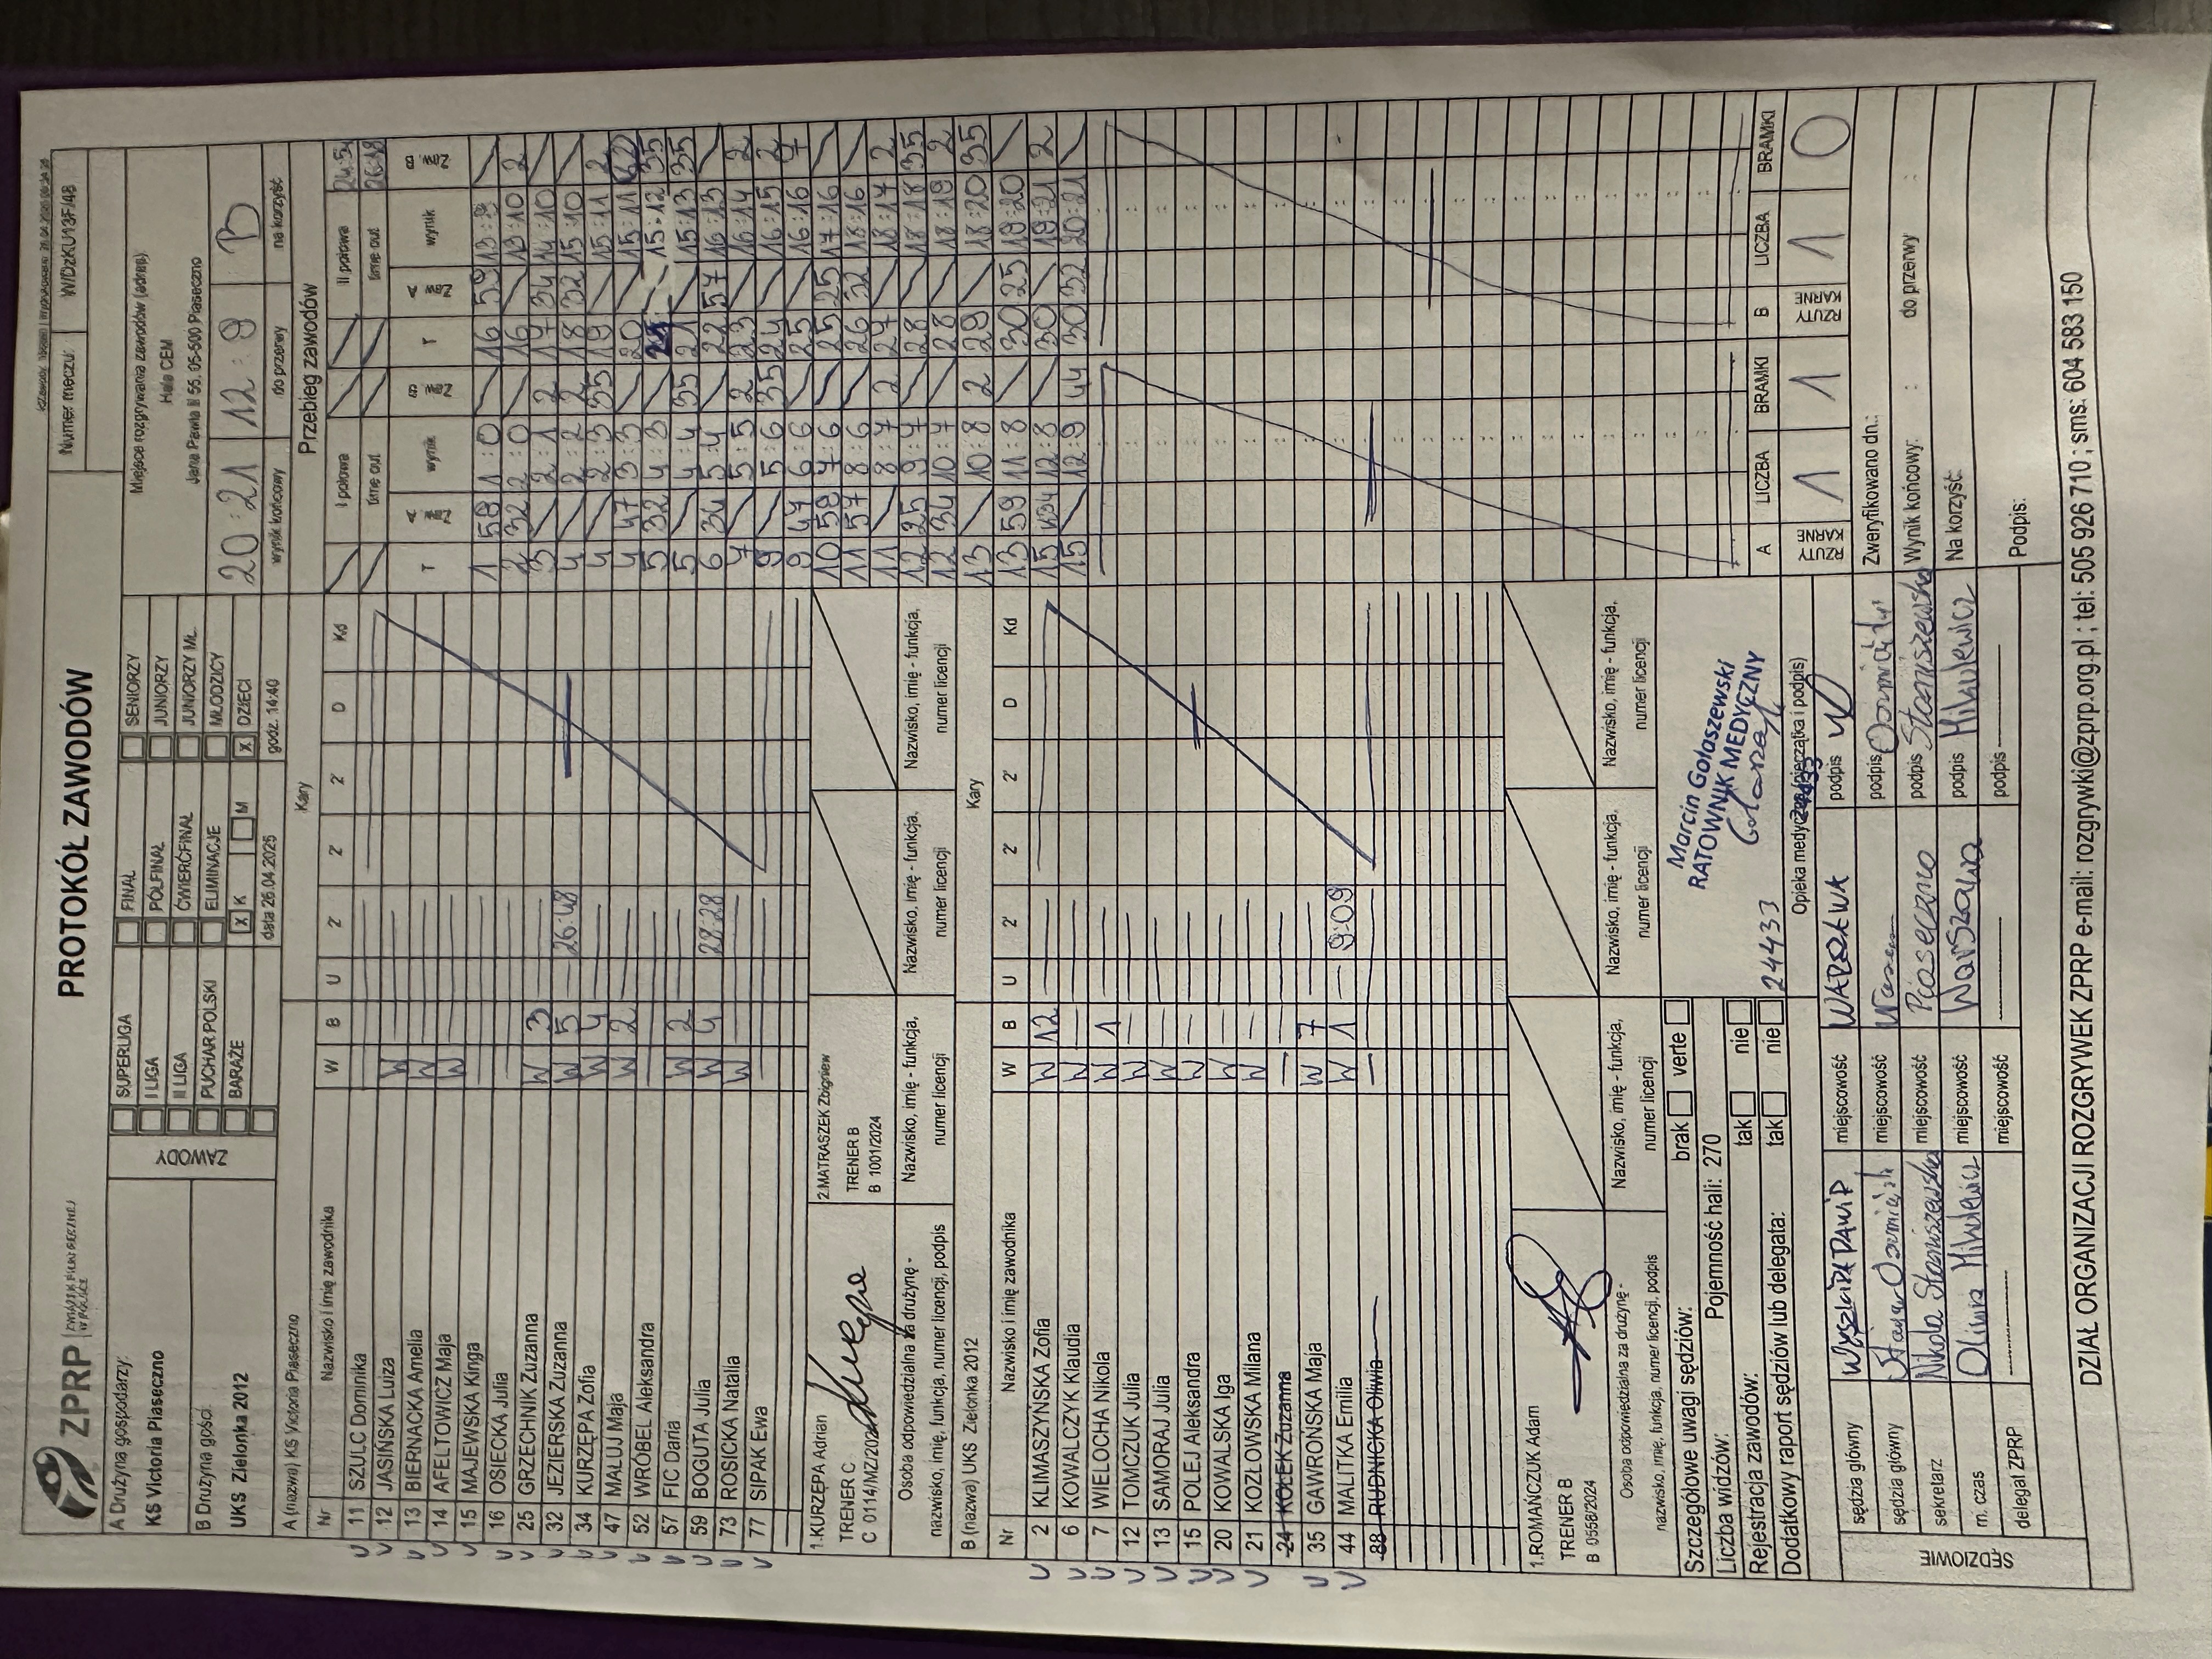 ZPRP
ZWIĄZEK PIŁKI RĘCZNEJ
W POLSCE
PROTOKÓŁ ZAWODÓW
Numer meczu: WDzKU13F/48
A Drużyna gospodarzy:
KS Victoria Piaseczno
B Drużyna gości:
UKS Zielonka 2012
ZAWODY
SUPERLIGA
I LIGA
II LIGA
PUCHAR POLSKI
BARAŻE
FINAŁ
PÓŁFINAŁ
ĆWIERĆFINAŁ
ELIMINACJE
X K M
data 26.04.2025
SENIORZY
JUNIORZY
JUNIORZY MŁ.
MŁODZICY
X DZIECI
godz. 14:40
Miejsce rozgrywania zawodów (adres):
Hala CEM
Jana Pawła II 55, 05-500 Piaseczno
20 : 21 12 : 9 B
wynik końcowy do przerwy na korzyść
A (nazwa) KS Victoria Piaseczno Kary
Nr Nazwisko i imię zawodnika W B U 2' 2' 2' D Kd
11 SZULC Dominika
12 JASIŃSKA Luiza W
13 BIERNACKA Amelia W
14 AFELTOWICZ Maja W
15 MAJEWSKA Kinga
16 OSIECKA Julia
25 GRZECHNIK Zuzanna W 3
32 JEZIERSKA Zuzanna W 5 26:48
34 KURZĘPA Zofia W 4
47 MALUJ Maja W 2
52 WRÓBEL Aleksandra
57 FIC Daria W 2
59 BOGUTA Julia W 4 28:28
73 ROSICKA Natalia W
77 SIPAK Ewa
1.KURZĘPA Adrien
TRENER C
C 0114/MZ/202
2.MATRASZEK Zbigniew
TRENER B
B 1001/2024
Osoba odpowiedzialna za drużynę -
nazwisko, imię, funkcja, numer licencji, podpis
Nazwisko, imię - funkcja,
numer licencji
Nazwisko, imię - funkcja,
numer licencji
Nazwisko, imię - funkcja,
numer licencji
B (nazwa) UKS Zielonka 2012 Kary
Nr Nazwisko i imię zawodnika W B U 2' 2' 2' D Kd
2 KLIMASZYŃSKA Zofia W 12
6 KOWALCZYK Klaudia W
7 WIELOCHA Nikola W 1
12 TOMCZUK Julia W
13 SAMORAJ Julia W
15 POLEJ Aleksandra
20 KOWALSKA Iga W
21 KOZŁOWSKA Milana W
24 KOŁEK Zuzanna
35 GAWROŃSKA Maja W 7
44 MALITKA Emilia W 1 9:09
88 RUDNICKA Oliwia
1.ROMAŃCZUK Adam
TRENER B
B 0558/2024
Osoba odpowiedzialna za drużynę -
nazwisko, imię, funkcja, numer licencji, podpis
Nazwisko, imię - funkcja,
numer licencji
Nazwisko, imię - funkcja,
numer licencji
Nazwisko, imię - funkcja,
numer licencji
Przebieg zawodów
I połowa II połowa
time out time out 26:18
T A wynik B T A wynik B
1 58 1:0 16 59 13:9
2 32 2:0 16 13:10 2
3 2:1 2 17 34 14:10
4 2:2 2 18 32 15:10
4 2:3 35 19 15:11 2
4 47 3:3 20 15:11
5 32 4:3 15:12 35
5 4:4 35 21 15:13 35
6 34 5:4 22 57 16:13
7 5:5 2 23 16:14 2
9 5:6 35 24 16:15 2
9 47 6:6 25 16:16 7
10 58 7:6 25 25 17:16
11 57 8:6 26 32 18:16
11 8:7 2 27 18:17 2
12 25 9:7 28 18:18 35
12 34 10:7 28 18:19 2
13 10:8 2 29 18:20 35
13 59 11:8 30 25 19:20
15 34 12:8 30 19:21 2
15 12:9 44 30 32 20:21
A RZUTY KARNE LICZBA BRAMKI B RZUTY KARNE LICZBA BRAMKI
1 1 1 0
Szczegółowe uwagi sędziów: brak verte
Liczba widzów: Pojemność hali: 270
Rejestracja zawodów: tak nie
Dodatkowy raport sędziów lub delegata: tak nie
Marcin Gołaszewski
RATOWNIK MEDYCZNY
24433
Opieka medyczna (pieczątka i podpis)
SĘDZIOWIE
sędzia główny DAWID miejscowość WARSZAWA podpis
sędzia główny miejscowość podpis
sekretarz Nikola Staniszewska miejscowość Piaseczno podpis Staniszewska
m. czas Oliwia Mikulewicz miejscowość Warszawa podpis Mikulewicz
delegat ZPRP miejscowość podpis
Zweryfikowano dn.:
Wynik końcowy: : do przerwy :
Na korzyść:
Podpis:
DZIAŁ ORGANIZACJI ROZGRYWEK ZPRP e-mail: rozgrywki@zprp.org.pl ; tel: 505 926 710 ; sms: 604 583 150